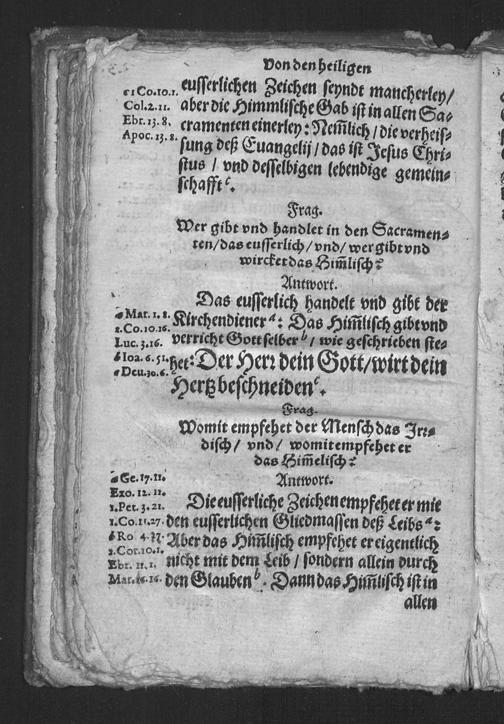 Von den heiligen
c 1 Co. 10. 1. eusserlichen Zeichen seyndt mancherley/
Col. 2. 11. aber die Himmlische Gab ist in allen Sa-
Ebr. 13. 8. cramenten einerley: Nem̃lich/ die verheis-
Apoc. 13. 8. sung deß Euangelij/ das ist Jesus Chri-
stus/ vnd desselbigen lebendige gemein-
schafft c.
Frag.
Wer gibt vnd handlet in den Sacramen-
ten/ das eusserlich/ vnd/ wer gibt vnd
wircket das Him̃lisch?
Antwort.
Das eusserlich handelt vnd gibt der
a Mat. 1. 8. Kirchendiener a: Das Him̃lisch gibt vnd
1. Co. 10. 16. verricht Gott selber b/ wie geschrieben ste-
Luc. 3. 16.
b Ioa. 6. 51. het: Der Herr dein Gott/ wirt dein
c Deu. 30. 6. Hertz beschneiden c.
Frag.
Womit empfehet der Mensch das Irr-
disch/ vnd/ womit empfehet er
das Him̃elisch?
Antwort.
a Ge. 17. 11.
Exo. 12. 11. Die eusserliche Zeichen empfehet er mie
1. Pet. 3. 21.
1. Co. 11. 27. den eusserlichen Gliedmassen deß Leibs a:
b Ro 4. Aber das Him̃lisch empfehet er eigentlich
2. Cor. 10. 1. nicht mit dem Leib/ sondern allein durch
Ebr. 11. 1.
Mar. 16. 16. den Glauben b. Dann das Him̃lisch ist in
allen